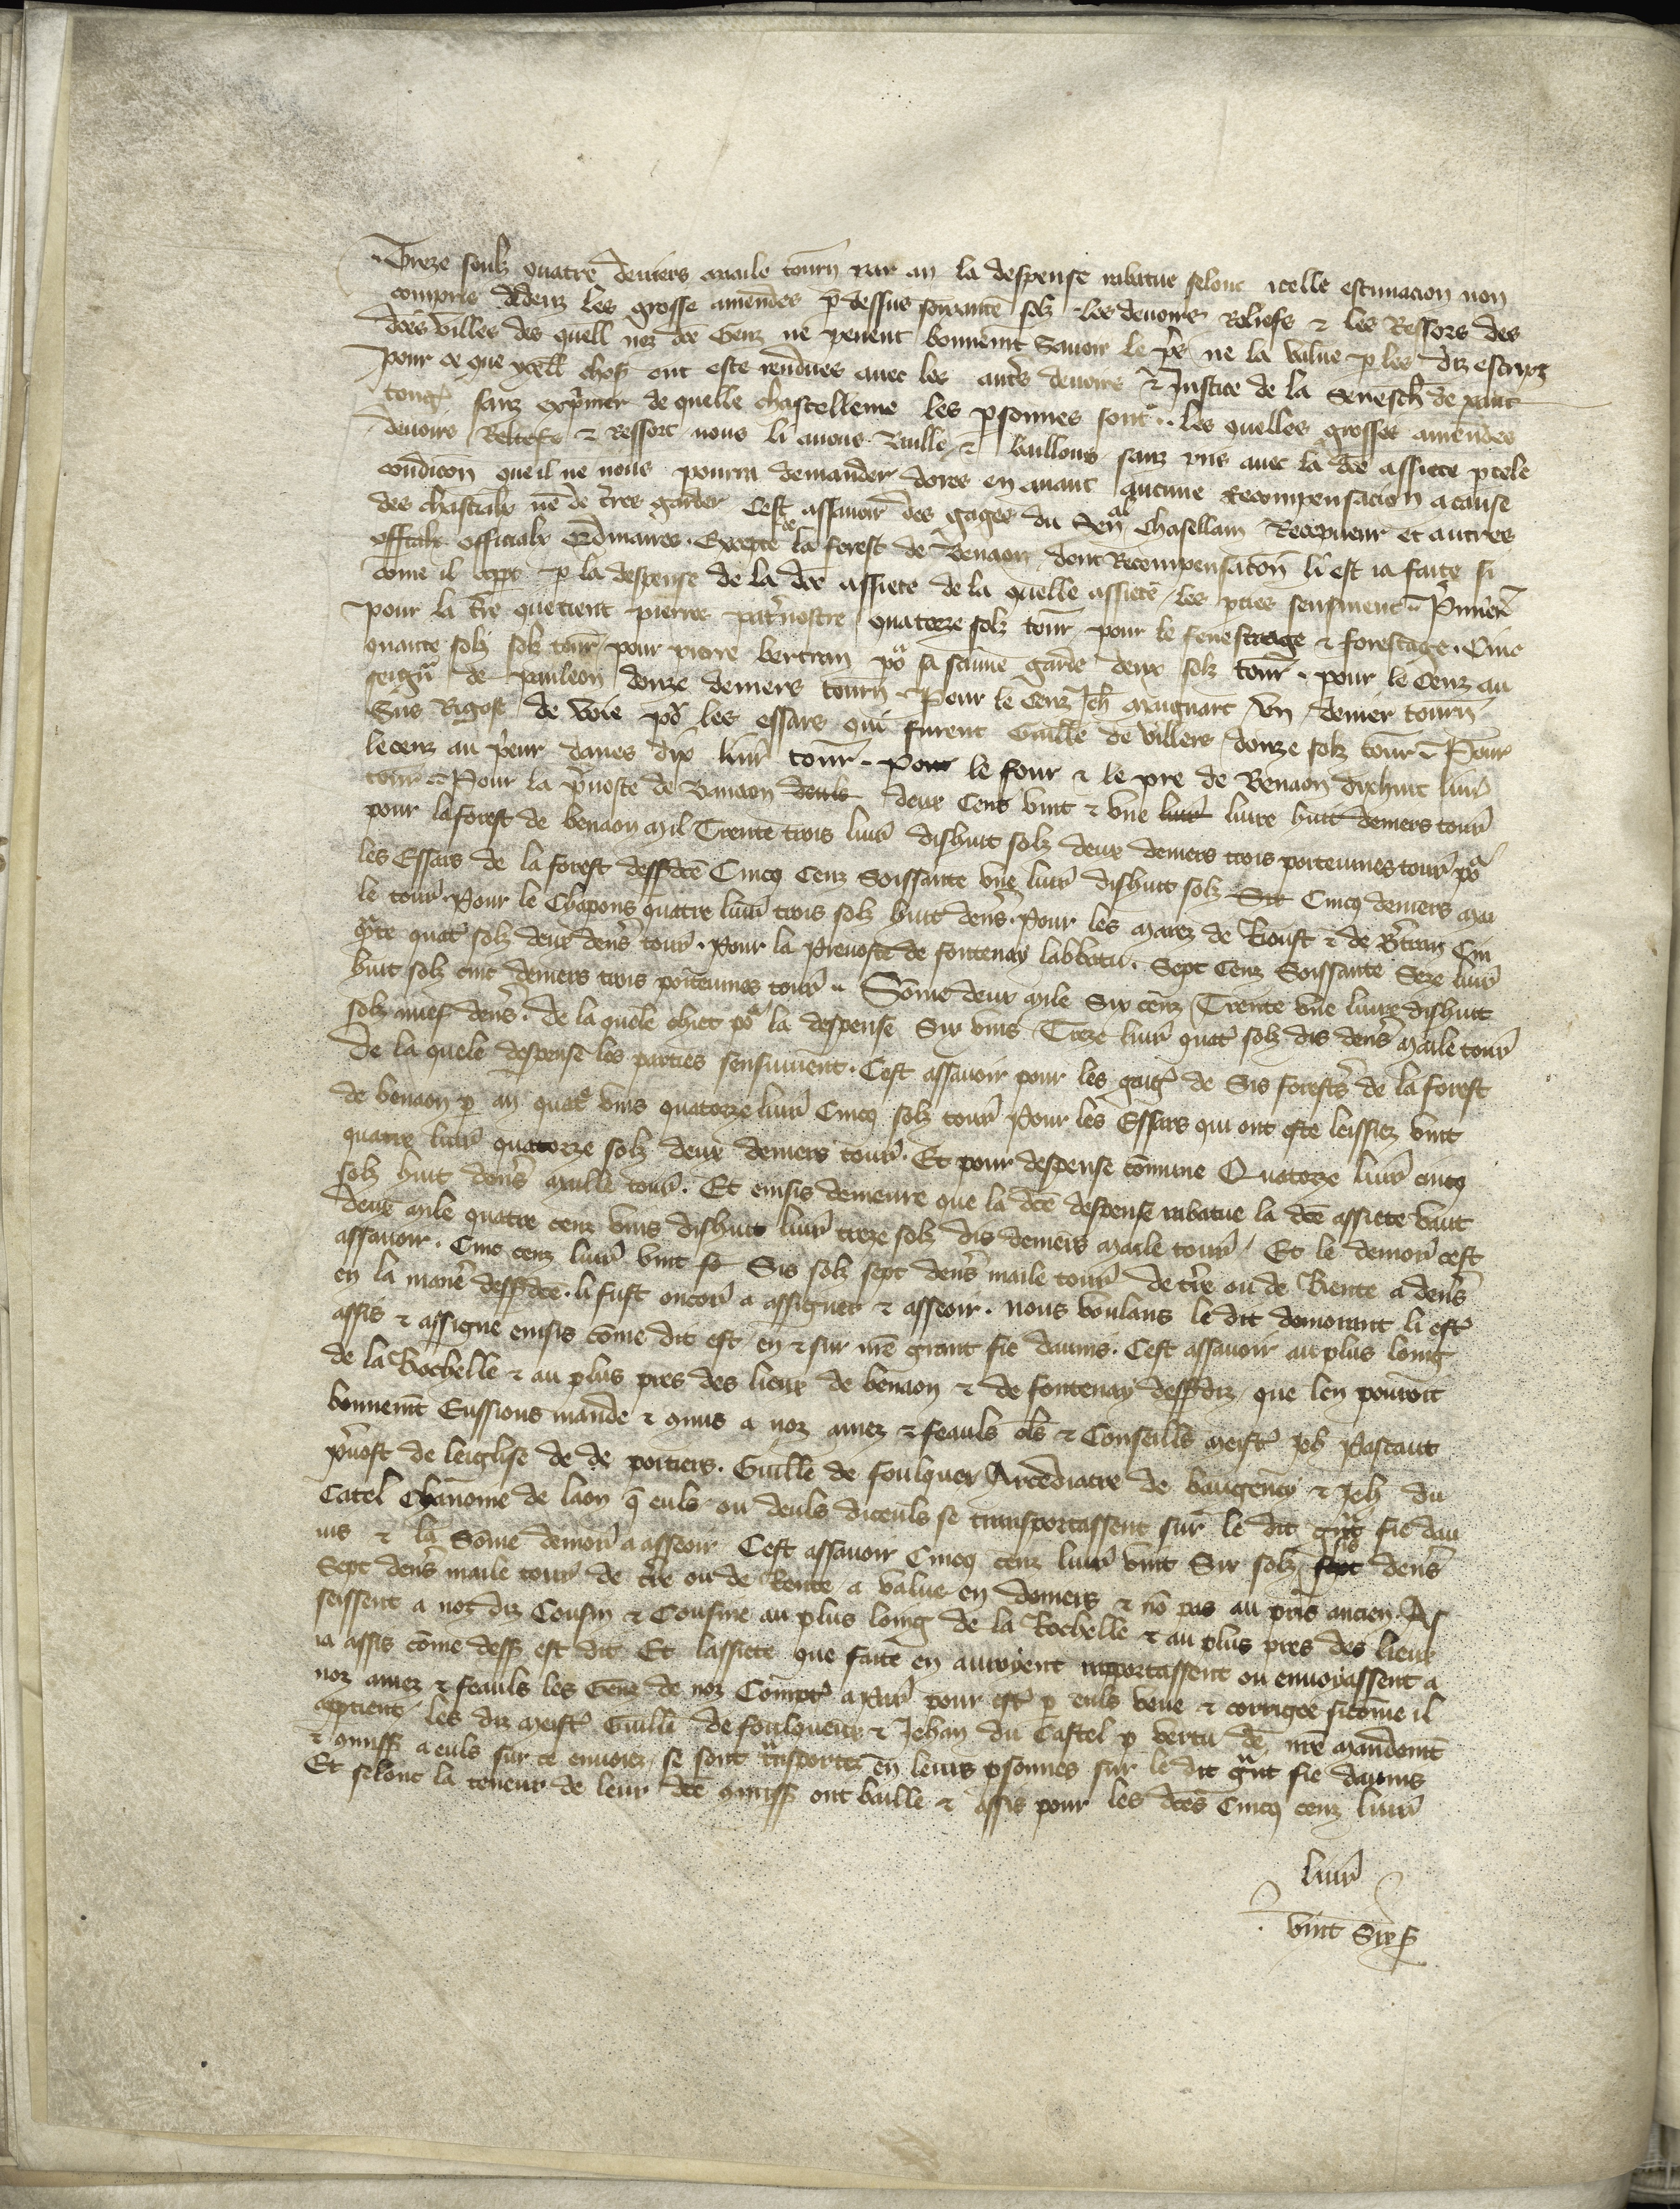 Treze soulz quatre deniers maile tourn par an la despense rabatue selonc icelle estimacion non
compris dedenz les grosse amendes p dessus soixante solz les devoirs Reliefs & les Ressors des
dces villes des quell noz dce Genz ne pevent bonnemt Savoir le pris ne la value p les diz escripz
pour ce que ycell choses ont este rendues avec les autrs devoirs & Justice de la Senesch de xainc
tong sanz exprimer de quelle chastellenie les psonnes sont .. les quelles grosses amendes
devoirs Reliefs & Ressort nous li avons Baille & baillons sanz pris avec la dce assiete p tele
condicon que il ne nous pourra demander dores en avant aucune Recompensacion a cause
des chastiaux ne de trres garder Cest assavoir des gages du Sen chasellain Recepveur et autres
officialx officialx Ordinaires . Excepte de la forest de Benaon dont Recompensacon li est ia faite si
come il appt p la despense de la dce assiete de la quelle assiete les pties sensuient .. Primerement
pour la tre que tient pierres patrnostre quatorze solz tour pour le fenestrage & forestage . Cinc
quante solz solz tour pour pierre bertran po sa saune garde deux solz tour . pour le Cenz au
seign de pauleon douze deniers tourn . Pour le Cenz Jeh maignart Un denier tourn
Sus Rigost de voie po les essars qui furent Guille de villers douze solz tour . Pour
le cenz au peur daves dix livr tour . Pour le four & le pre de Benaon dixhuit livr
tour . Pour la pvoste de Banaon deuls deux Cens vint & une livr livre huit deniers tour
pour la forest de benaon mil Trente trois livr dishuit solz deux deniers trois poitevines tour po
les Essars de la forest dessdce Cincq Cenz Soissante une livr dishuit solz Six Cincq deniers mai
le tour . Pour le Chapons quatre livr trois solz huit dens . Pour les marez de Rioust & de Btran Cin
qte quat solz deux dens tour . Pour la Prevoste de fontenay labbatu . Sept Cenz Soissante Seze livr
huit solz cinc deniers trois poitevines tour .. Some deux mile Six cenz Trente une livre dishuit
solz nuef dens . de la quele chiet po la despense Six vins Treze livr quat solz dis dens maile tour
De la quele despense les parties sensuivent . Cest assavoir pour les gaig de Sis forests de la forest
de benaon p an quat vins quatorze livr Cincq solz tour Pour les Essars qui ont este leissiez vint
quatre livr quatorze solz deux deniers tour . Et pour despense comune Quatorze livr cincq
solz huit dens maille tour . Et einsis demeure que la dce despense rabatue la dce assiete vaut
deux mile quatre cenz vins dishuit livr treze solz dis deniers maile tour / Et le demor cest
assavoir . Cinc cenz livr vint so Sis solz sept dens maile tour de tre ou de Rente a dens
en la manre dessdce . li fust oncor a assigner & asseoir . nous voulans le dit demorant li est
assis & assigne einsis come dit est en & sur nre grant fie daunis . Cest assavoir au plus loing
de la Rochelle & au plus pres des lieux de benaon & de fontenay dessdiz que len pouroit
bonnemt Eussions mande & gmis a noz amez & feauls cls & Conseills meistr Jeh Pastaut
pvost de leiglise de de poitiers . Guille de foulquer Arcediacre de baugency & Jeh du
Catel Chanoine de laon q euls ou deuls diceuls se transportassent sur le dit gnt fie dau
nis & la Some demor a asseoir Cest assavoir Cincq cenz livr vint Six solz sept sis dens
Sept dens maile tour de tre ou de Rente a value en deniers & no pas au pris ancien . As
seissent a noz diz Cousin & Cousine au plus loing de la Rochelle & au plus pres des lieux
ia assis come dess est dit Et lassiete que faite en auroyent raportassent ou envoyassent a
noz amez & feauls les Genz de noz Compt a par pour est p euls veue & corrigee sicome il
aptient les diz meistr Guill de foulqueux & Jehan du Castel p vertu de nre mandemt
& gmiss a euls sur ce envoiez se sont tnsportez en leurs psonnes sur le dit gnt fie daunis
Et selonc la teneur de leur dce gmiss ont baille & assis pour les dces Cincq cenz livr
livr
vint Six s